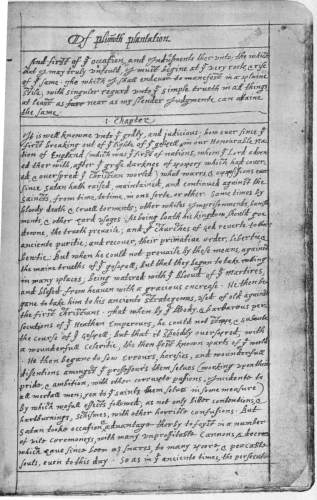 Of plimoth plantation.
And first of yᵉ occasion, and Indusments ther unto; the which
that I may truly unfould, I must begine at yᵉ very roote & rise
of yᵉ same. The which I shall endevor to manefest in a plaine
stile; with singuler regard unto yᵉ simple trueth in all things,
at least as near as my slender Judgmente can attaine
the same.
1. Chapter
It is well knowne unto yᵉ godly, and judicious; how ever since yᵉ
first breaking out of yᵉ lighte of yᵉ gospell, in our Honourable Na-
tion of England (which was yᵉ first of nations, whom yᵉ Lord adorn-
ed ther with, after yᵉ grosse darknes of popery which had cover-
ed & overspred yᵉ christian world) what warrs, & oppositions ever
since satan hath raised, maintained, and continued against the
saincts, from time, to time, in one sorte, or other. Some times by
bloody death & cruell torments; other whiles Imprisonments, banish-
ments, & other hard usages. As being loath his kingdom should goe
downe, the trueth prevaile; and yᵉ Churches of god reverte to their
anciente puritie; and recover, their primative order, libertie, &
bewtie. But when he could not prevaile by these means, against
the maine trueths of yᵉ gospell; but that they began to take rooting
in many places; being watered with yᵉ blood of yᵉ martires,
and blessed from heaven with a gracious encrease. He then be-
gane to take him to his anciente strategemes, used of old against
the first christians. That when by yᵉ bloody, & barbarous per-
secutions of yᵉ Heathen Emperours, he could not stoppe, & subuerte
the course of yᵉ gospell; but that it speedily overspred, with
a wounderfull celeritie, the then best known parts of yᵉ world.
He then begane to sow errours, heresies, and wounderfull
disentions amongst yᵉ professours them selves (working upon their
pride, & ambition, with other corrupte passions, Incidente to
all mortall men; yea to yᵉ saints them selves in some measure)
by which wofull effects followed; as not only bitter contentions, &
hartburnings, schismes, with other horrible confusions. But
satan tooke occasion & advantage therby to foyst in a number
of vile ceremoneys, with many unproffitable Cannons, & decrees
which have since been as snares, to many poore, & peaceable
souls, even to this day. So as in yᵉ anciente times, the persecutions